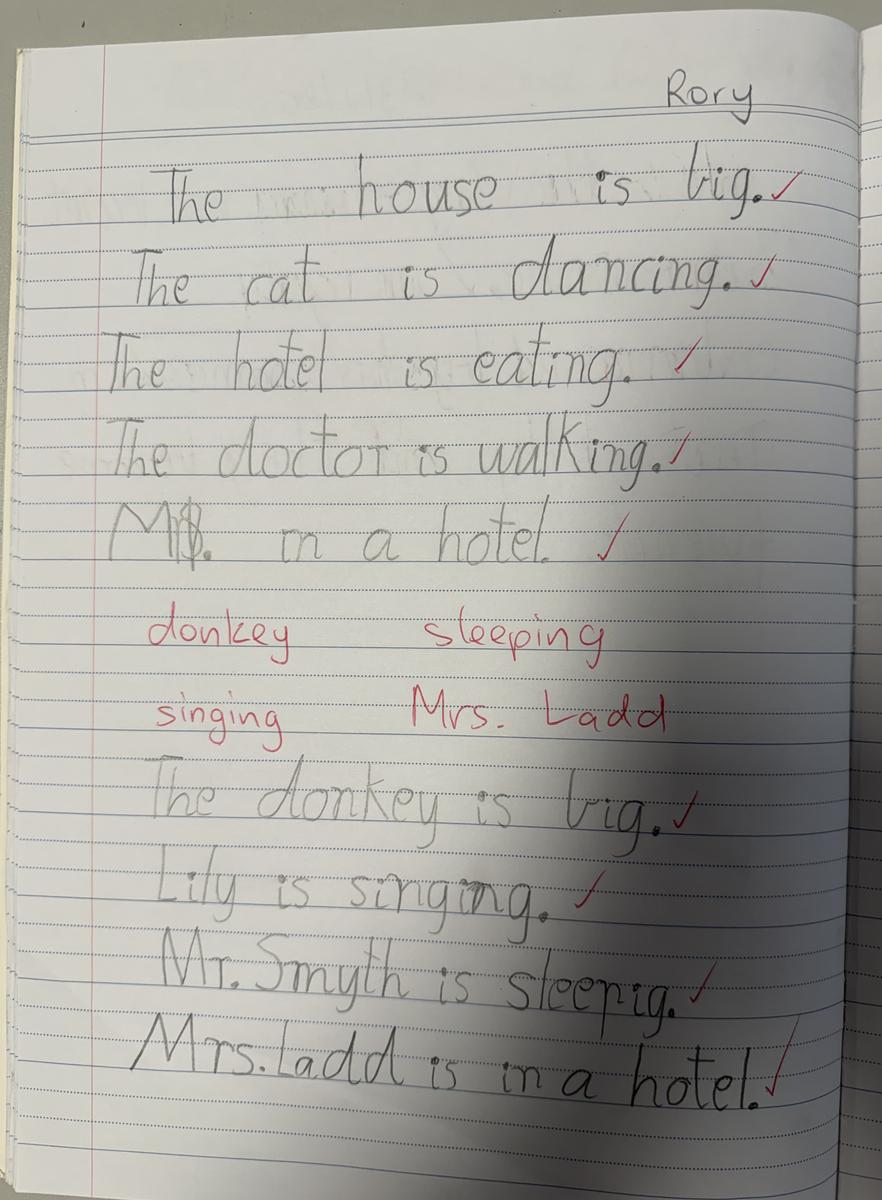 Rory
The house is big.
The cat is dancing.
The hotel is eating.
The doctor is walking.
in a hotel.
donkey sleeping
singing Mrs. Ladd
The donkey is big.
Lily is singing.
Mr. Smyth is sleepig.
Mrs. Ladd is in a hotel.